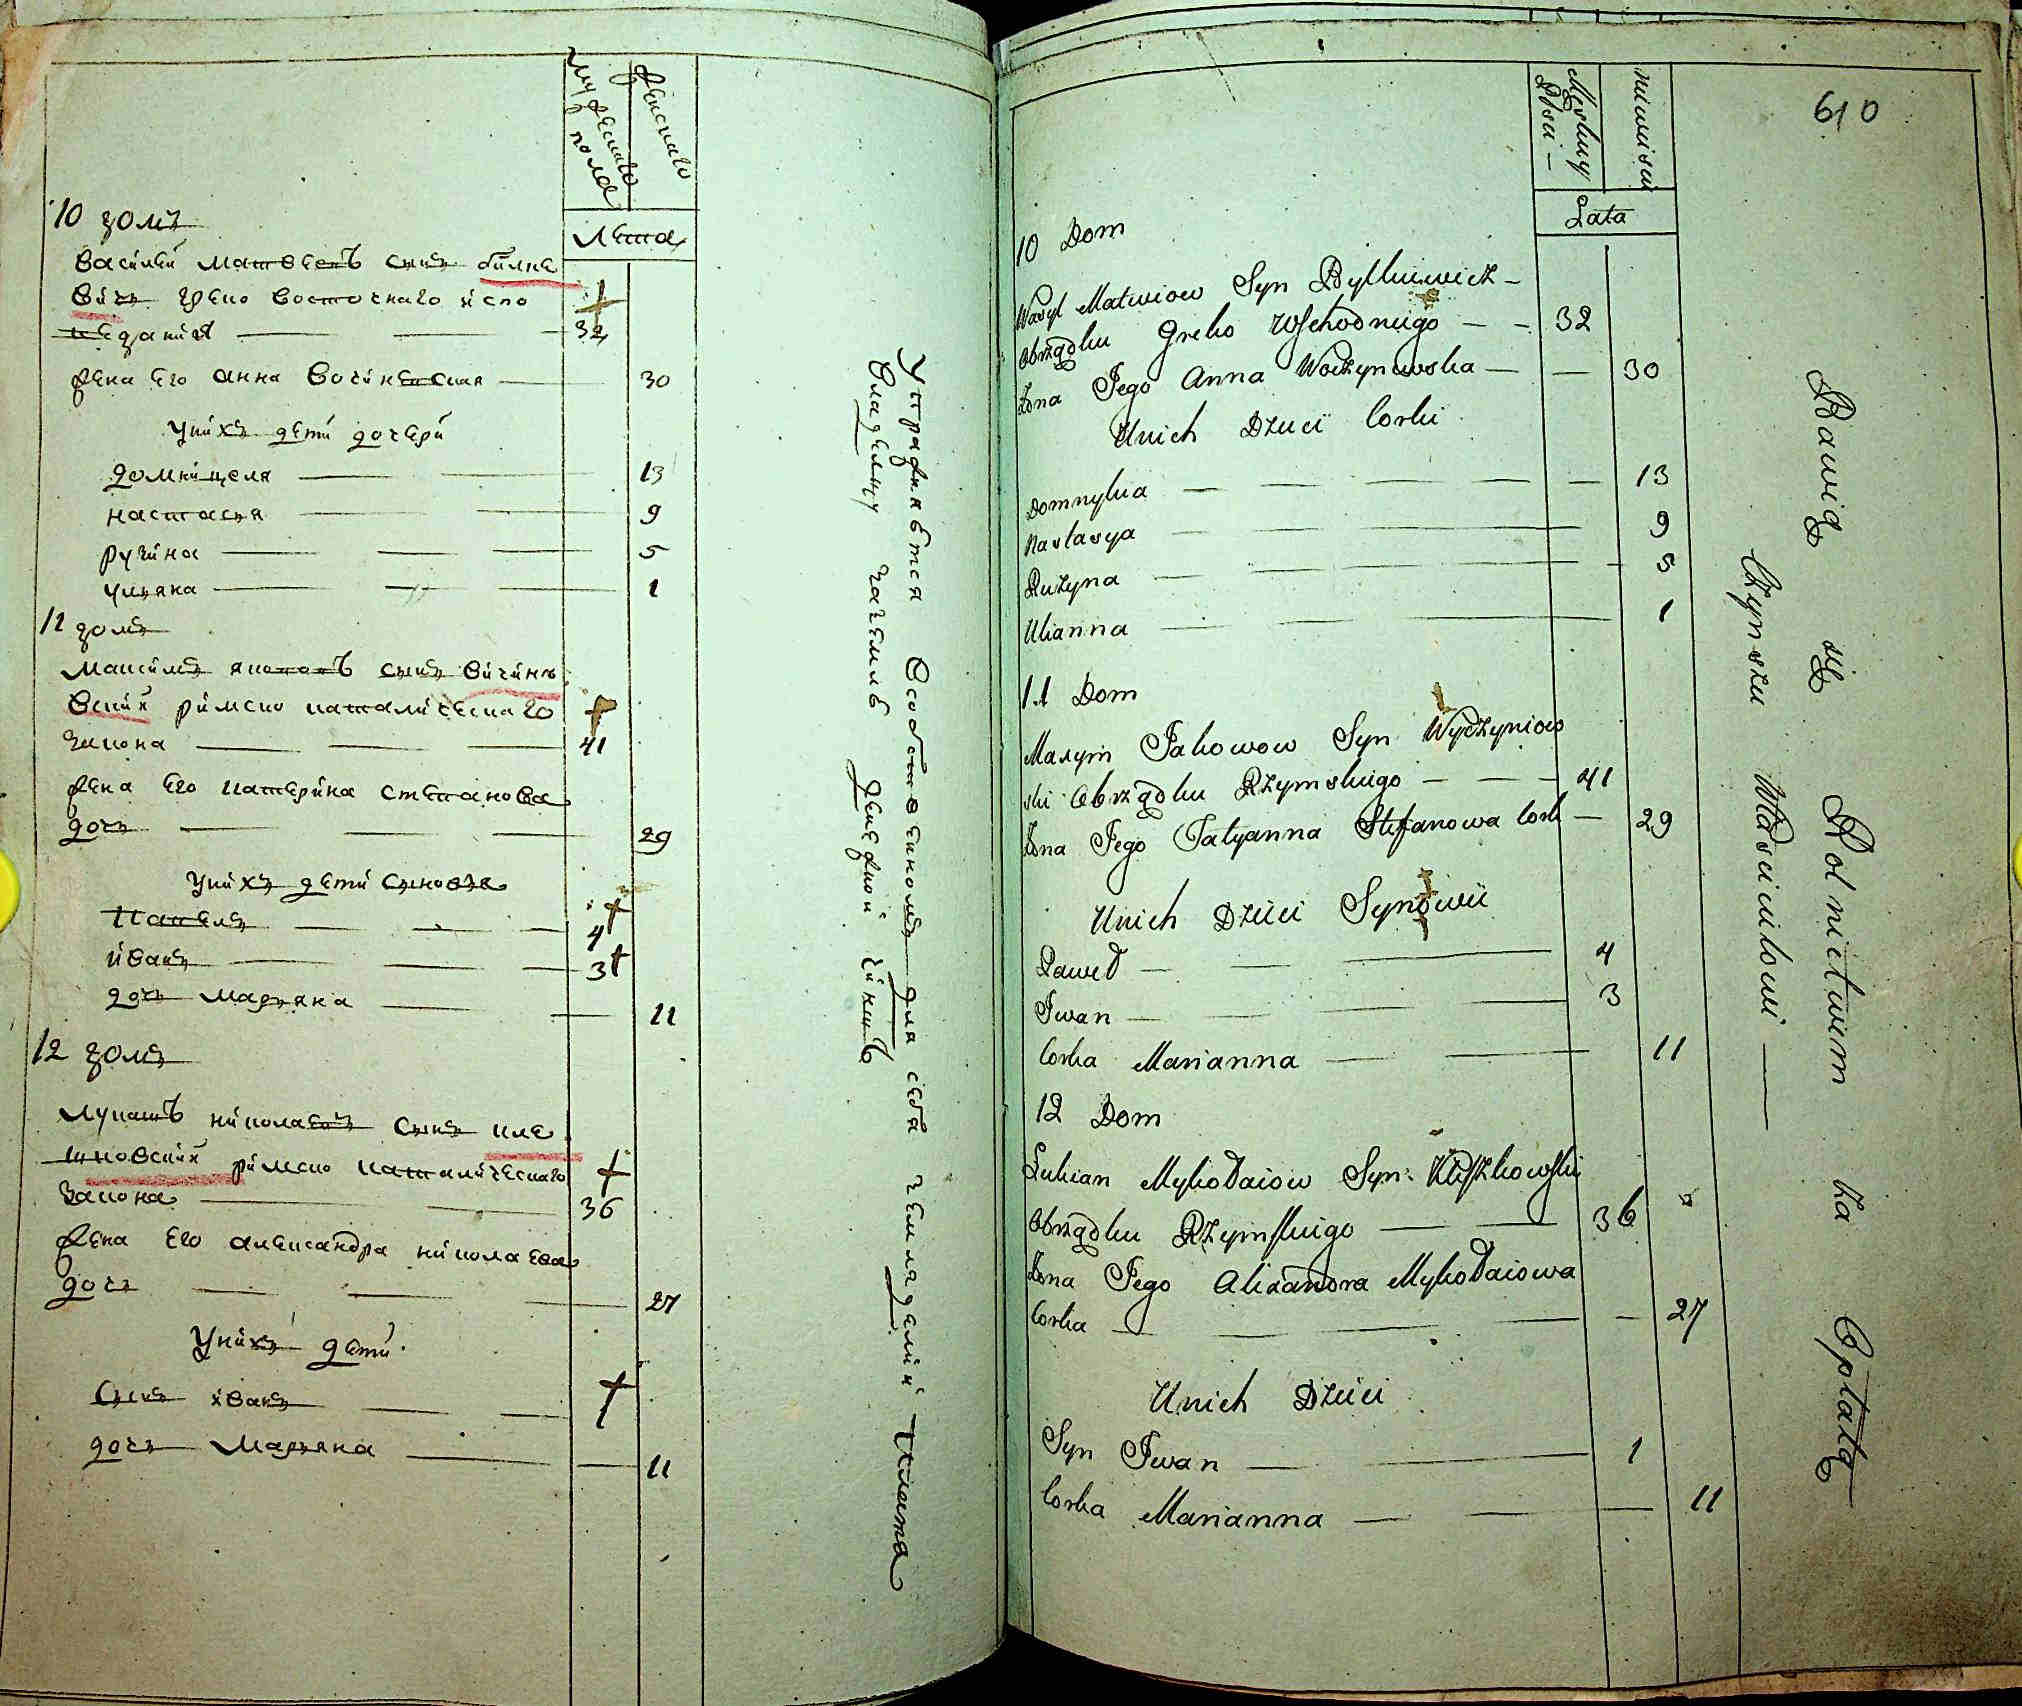 мужескаго пола
женскаго
Лета
10 домъ
Василий Матвеевъ сынъ билке
вичь греко восточнаго испо
ведания 32
жена его анна Вочинвская 30
у них дети дочери
домницеля 13
настасья 9
ружина 5
ульяна 1
11 домъ
Максимъ яковлевъ сынъ вичинъ
вский римско католическаго
закона 41
жена его катерина степанова
дочь 29
у нихъ дети сыновья
Павелъ 4
иванъ 3
дочь Марьяна 11
12 домъ
Лукашъ николаевъ сынъ кле
шковский римско католическаго
закона 36
жена его александра николаева
дочь 27
у нихъ дети
сынъ иванъ
дочь Марьяна 11
Упражняются Особственномъ для себя земляделии Плата
Владельцу за землю денежной чиншъ
610
Męskiey Płci
niewiściey
Lata
10 Dom
Wasyl Matwiow Syn Bylkiewicz
Obrządku Greko Wschodniego 32
Żona Jego Anna Woczynewska 30
Unich Dzieci Corki
Domnykia 13
Nastasya 9
Rużyna 5
Ulianna 1
11 Dom
Maxym Jakowow Syn Wyczyniow
ski Obrządku Rzymskiego 41
Żona Jego Tatyanna Stefanowa Cork 29
Unich Dzieci Synowii
Paweł 4
Iwan 3
Corka Marianna 11
12 Dom
Łukian Mykołaiow Syn Kliszkowski
Obrządku Rzymskiego 36
Żona Jego Alixandra Mykołaiowa
Corka 27
Unich Dzieci
Syn Iwan 1
Corka Marianna 11
Bawią się Rolnictwem za Opłatą
Czynszu Włascicielowi